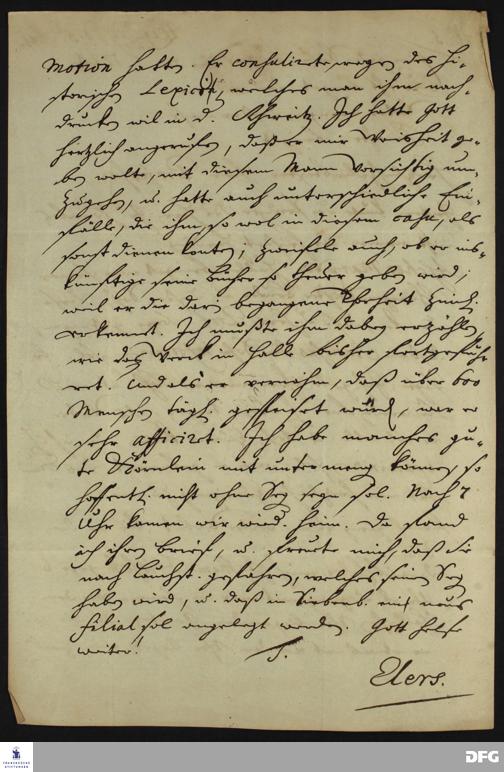 motion hatten. Er consulirte wegen des Hi-
storischen Lexici, welches man ihm nach-
drucken wil in d. Schweitz. Ich hatte Gott
hertzlich angeruffen, daß er mir Weisheit ge-
ben wolte, mit diesem Mann vorsichtig um-
zugehen, u. hatte auch unterschiedliche Ein-
fälle, die ihm, so wol in diesem casu, als
sonst dienen konten; zweifele auch, ob er ins-
künftige seine Bücher so theuer geben wird;
weil er die darin begangene Thorheit
erkennet. Ich mußte ihm dabey erzählen,
wie das Werck in Halle bisher fortgefüh-
ret. Und als er vernahm, daß über 600
Menschen tägl. gespeiset würden, war er
sehr afficiret. Ich habe manches gu-
te Körnlein mit untermengen können, so
hoffentl. nicht ohne Segen seyn sol. Nach 7
Uhr kamen wir wied. heim. Da fand
ich ihren brief, u. freuete mich, daß Sie
nach Lauchst. gefahren, welches seinen Segen
haben wird, u. daß in Siebenb. ein neues
Filial sol angelegt werden. Gott helfe
weiter!
Elers.
FRANCKESCHE
STIFTUNGEN
DFG